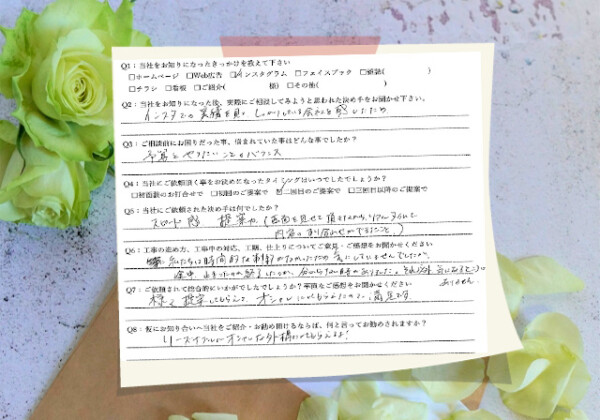 Q1：当社をお知りになったきっかけを教えて下さい
□ホームページ □Web広告 ☑インスタグラム □フェイスブック □雑誌( )
□チラシ □看板 □ご紹介( 様) □その他( )
Q2：当社をお知りになった後、実際にご相談してみようと思われた決め手をお聞かせ下さい。
インスタでの実績を見て、しっかりしている会社と感じたため
Q3：ご相談前にお困りだった事、悩まれていた事はどんな事でしたか？
予算とやりたいことのバランス
Q4：当社にご依頼頂く事をお決めになったタイミングはいつでしたでしょうか？
□初面談のお打合せで □初回のご提案で ☑二回目のご提案で □三回目以降のご提案で
Q5：当社にご依頼された決め手は何でしたか？
スピード感 提案力
Q6：工事の進め方、工事中の対応、工期、仕上りについてご意見・ご感想をお聞かせください
私たちは時間的な制約がなかったため気にしていませんでしたが、
Q7：ご依頼されて総合的にいかがでしたでしょうか？率直なご感想をお聞かせください
様々提案してもらえて、オシャレにしてもらえたので、満足です
Q8：仮にお知り合いへ当社をご紹介・お勧め頂けるならば、何と言ってお勧めされますか？
リーズナブルにオシャレな外構にしてもらえるよ！